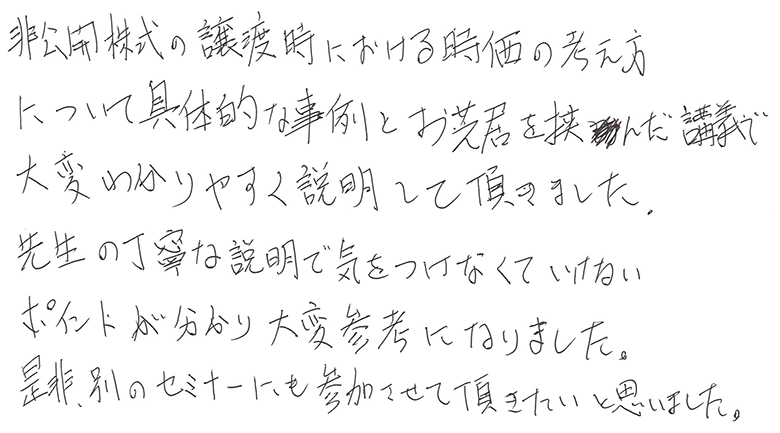 非公開株式の譲渡時における時価の考え方
について具体的な事例とお芝居を挟んだ講義で
大変わかりやすく説明して頂きました.
先生の丁寧な説明で気をつけなくていけない
ポイントが分かり大変参考になりました。
是非、別のセミナーにも参加させて頂きたいと思いました。